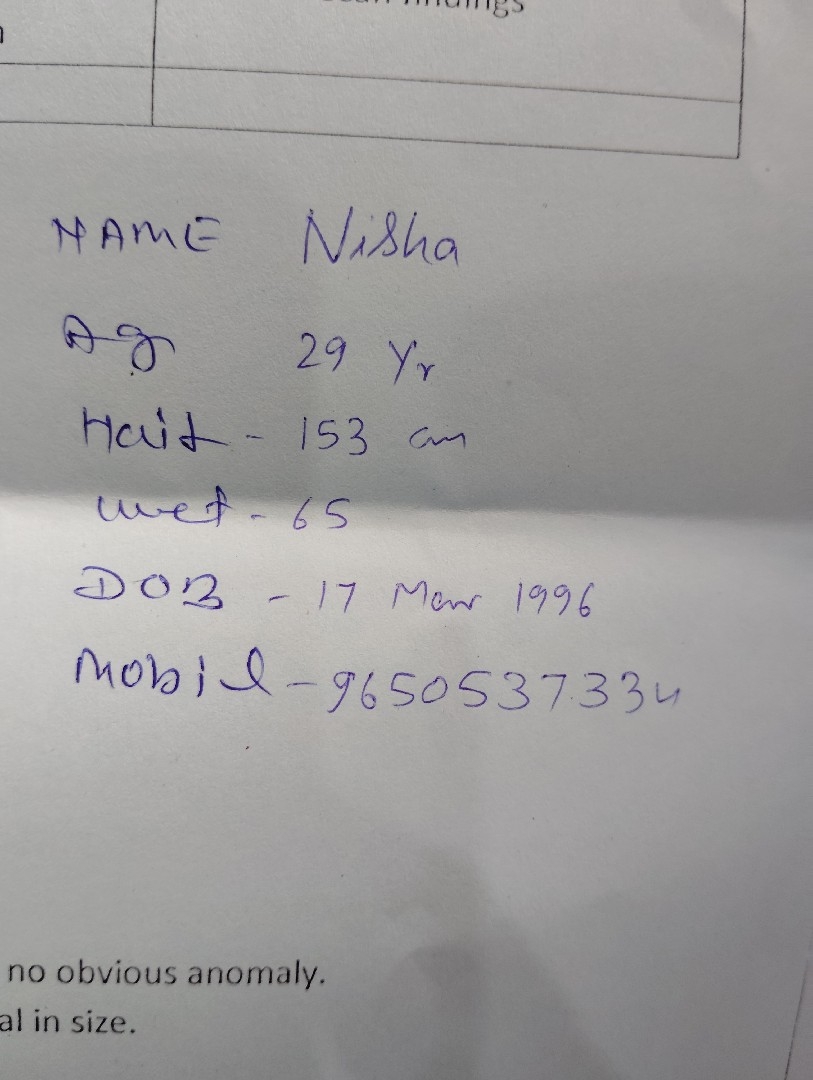 findings
NAME Nisha
Ag 29 Yr
Hait - 153 cm
wet - 65
DOB - 17 Mar 1996
Mobil - 9650537334
no obvious anomaly.
al in size.